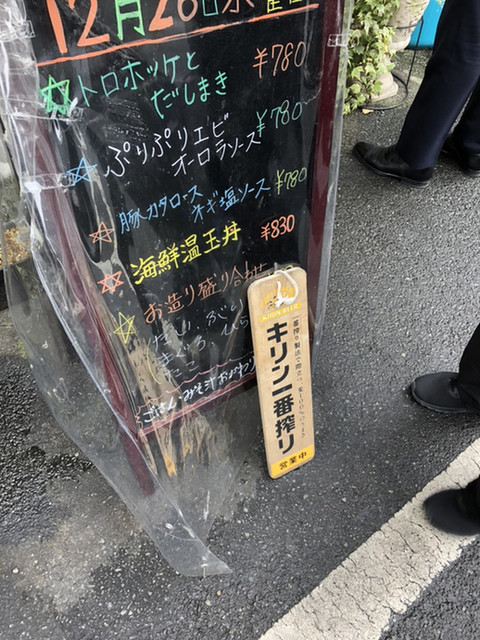 12月26日
トロホッケと
だしまき ¥780
ぷりぷりエビ
オーロラソース ¥780
豚カタロース
ネギ塩ソース ¥780
海鮮温玉丼 ¥830
お造り盛り合わせ
ぶり
まぐろ、ひら
たこ
ごはん・みそ汁おかわり
KIRIN BEER
キリン一番搾り
営業中